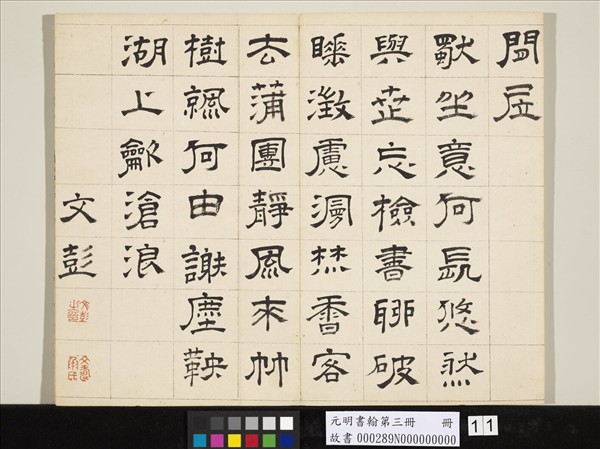 閒居
默坐意何長悠然
與世忘檢書聊破
睡澂慮漫焚香客
去蒲團靜風來竹
樹涼何由謝塵鞅
湖上滄浪
文彭
元明書翰第三冊 冊 11
故書 000289N000000000